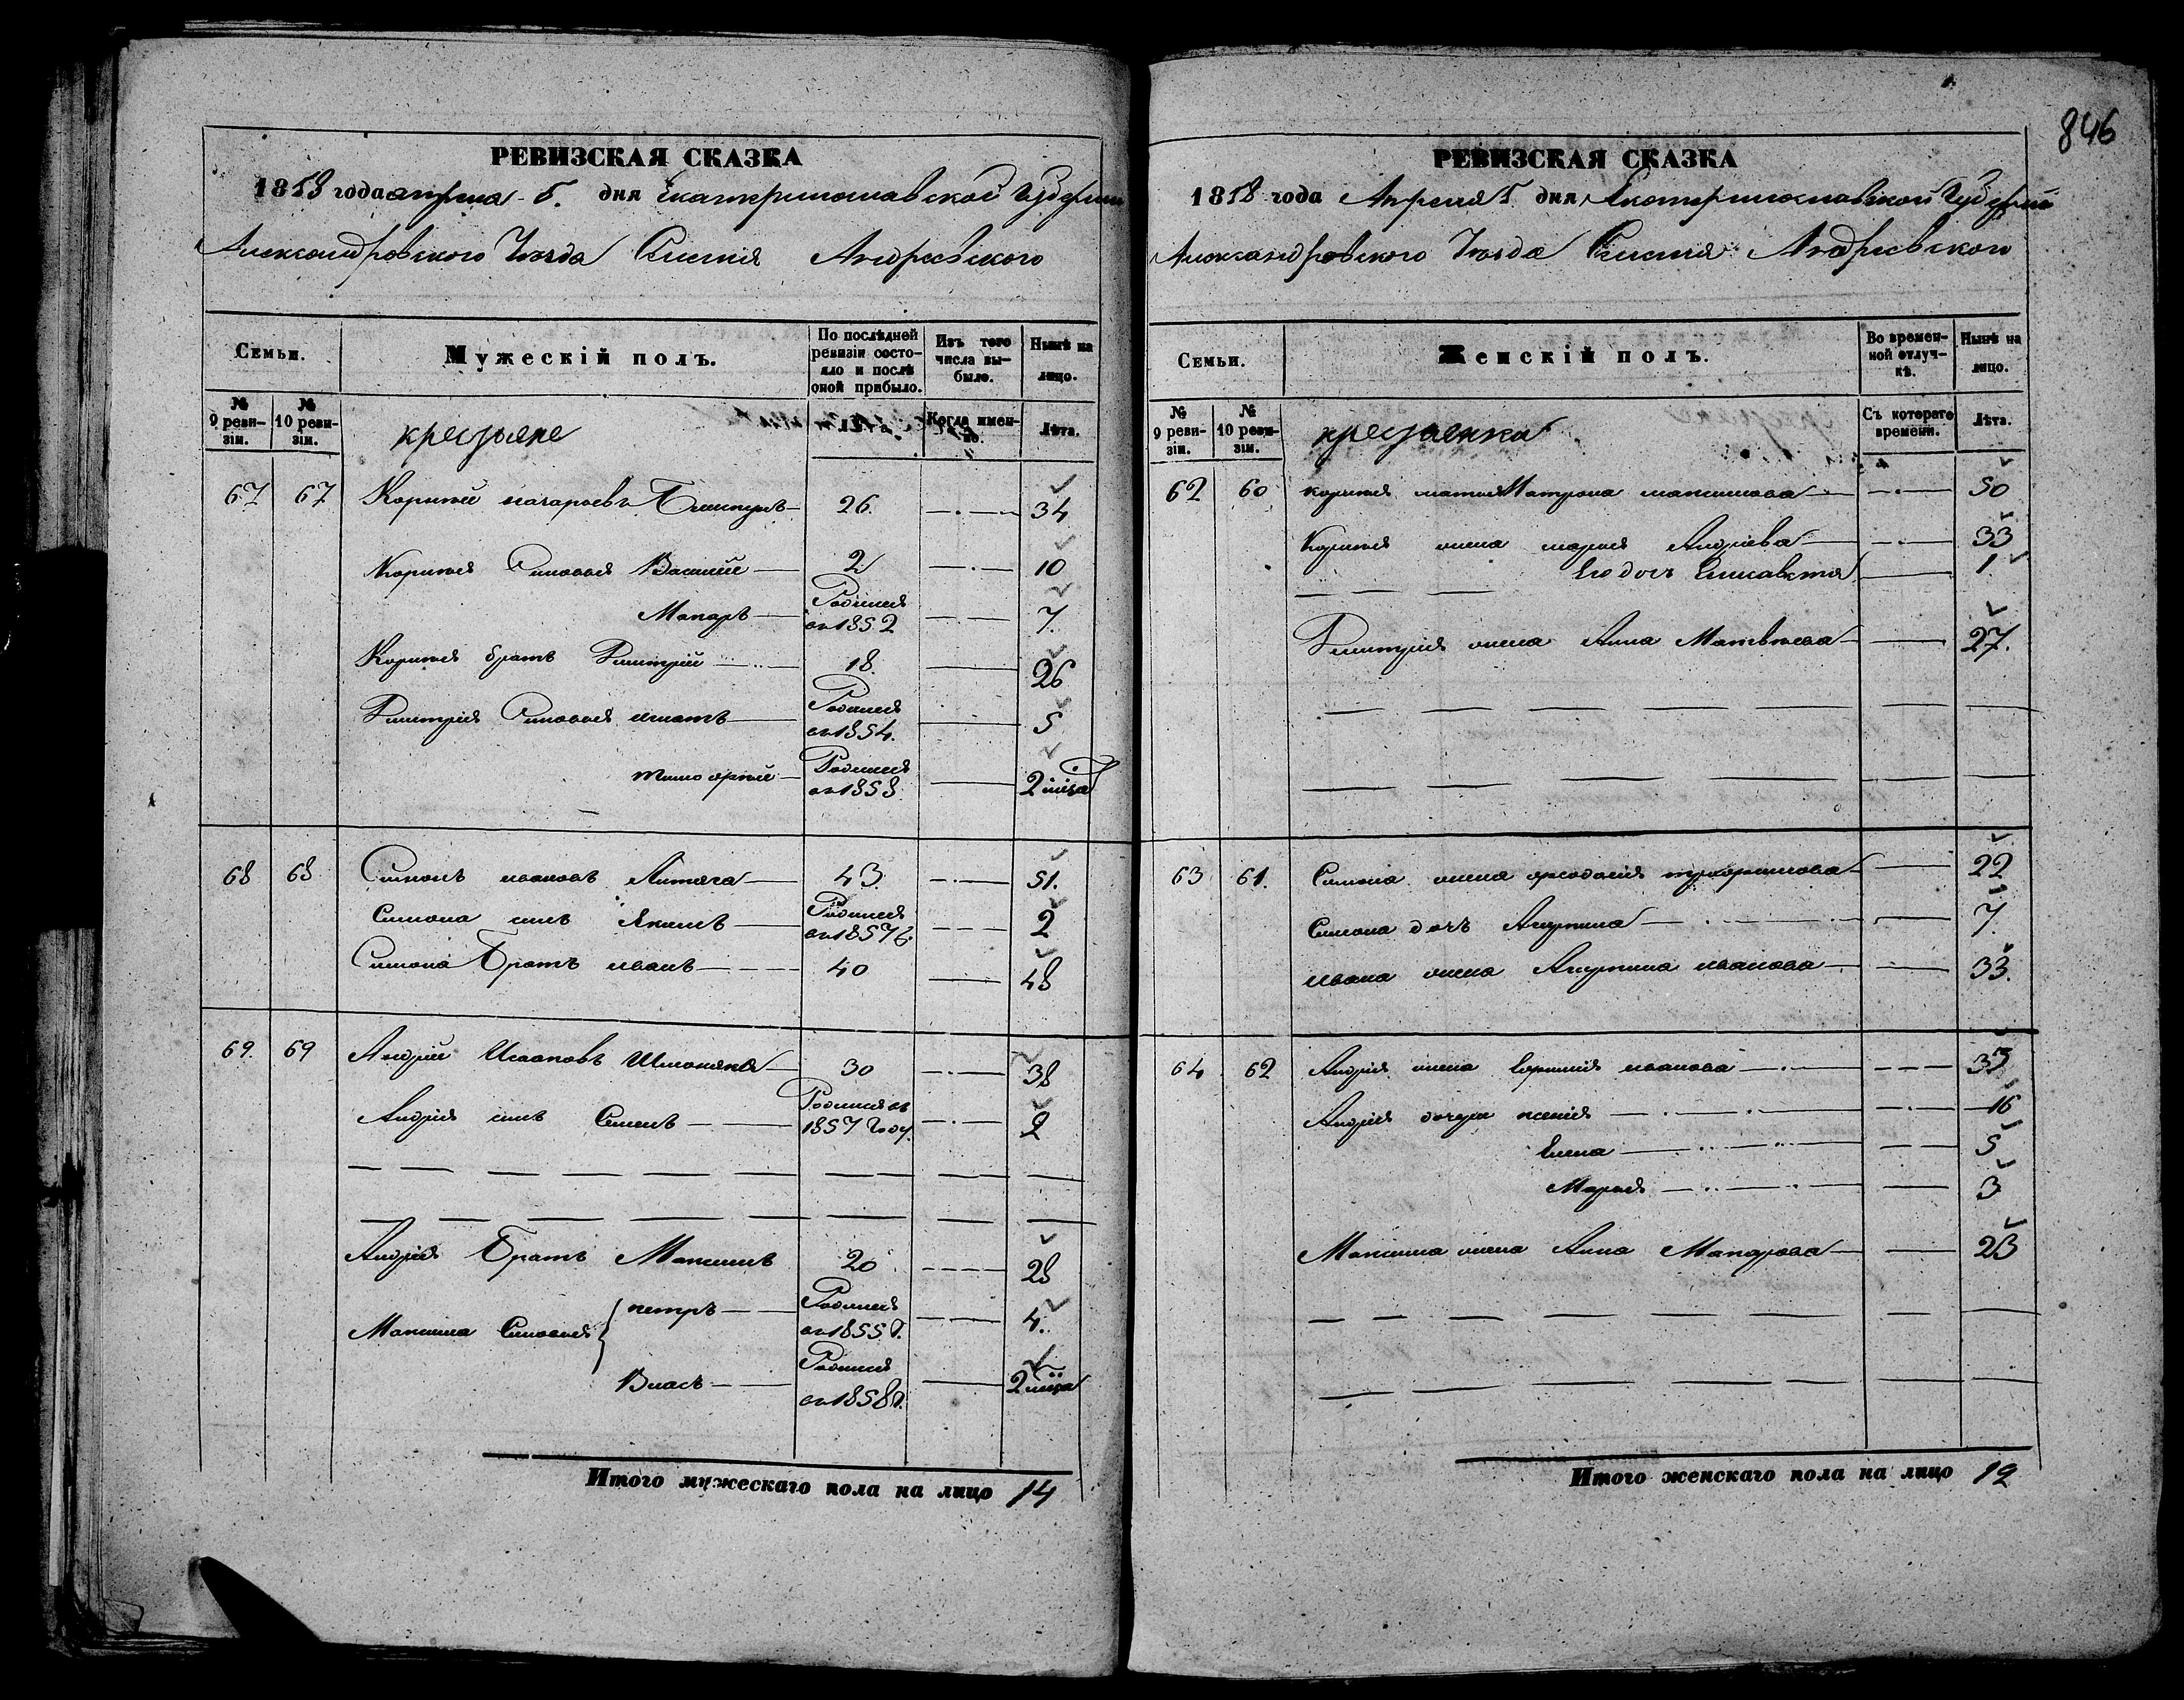 846
РЕВИЗСКАЯ СКАЗКА
1858 года апреля 5. дня Екатеринославской Губернии
Александровского Уезда Селения Андреевского
Семьи.
Мужескій полъ.
По послѣдней ревизіи состояло и послѣ оной прибыло.
Изъ того числа выбыло.
Нынѣ на лицо.
№ 9 ревизіи.
№ 10 ревизіи.
крестьяне
Лѣта.
Когда именно.
Лѣта.
67 67 Корнѣй 26. 34
Корнѣя Синовья Василій 2 10
Макаръ Родился въ 1852 7.
Корнѣя братъ Дмитрій 18. 26
Дмитрія Синовья Игнатъ Родился въ 1854. 5
Тимофей Родился въ 1858 2 міся
68 68 Симонъ Ивановъ 43. 51.
Симона синъ Якимъ Родился въ 1857 г. 2
Симона Братъ Иванъ 40 48
69. 69 Андрій Ивановъ 30 38
Андрія синъ Семенъ Родился въ 1857 году. 2
Андрія Братъ Максимъ 20 28
Максима Синовья петръ Родился въ 1855 г. 4.
Власъ Родился въ 1858 г. 2 міся
Итого мужескаго пола на лицо 14
РЕВИЗСКАЯ СКАЗКА
1858 года Апреля 5 дня Екатеринославской Губернии
Александровского Уезда Селения Андреевского
Семьи.
Женскій полъ.
Во временной отлучкѣ.
Нынѣ на лицо.
№ 9 ревизіи.
№ 10 ревизіи.
крестьянки
Съ котораго времени.
Лѣта.
62 60 корнѣя матия Матрона максимова 50
Корнѣя жена марья Андріева 33
Его дочъ Елисавета 1
Дмитрія жена Анна Матвѣева 27.
63 61. Симона жена феодосія 22
Симона дочъ Акулина 7.
ивана жена Акулина иванова 33.
64 62 Андрія жена Евфимія иванова 35
Андрія дочери ксенія 16
Елена 5
Марья 3
Максима жена Анна Макарова 23
Итого женскаго пола на лицо 12